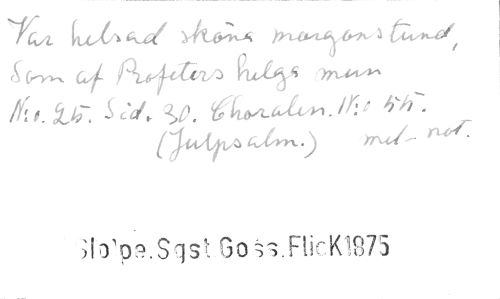 Var helsad sköna morgonstund,
Som af Profeters helga mun
N:o. 25. Sid. 30. Choralen. N:o 55.
(Julpsalm.) mel- not.
Slo'pe.Sgst Goss.FlicK1875